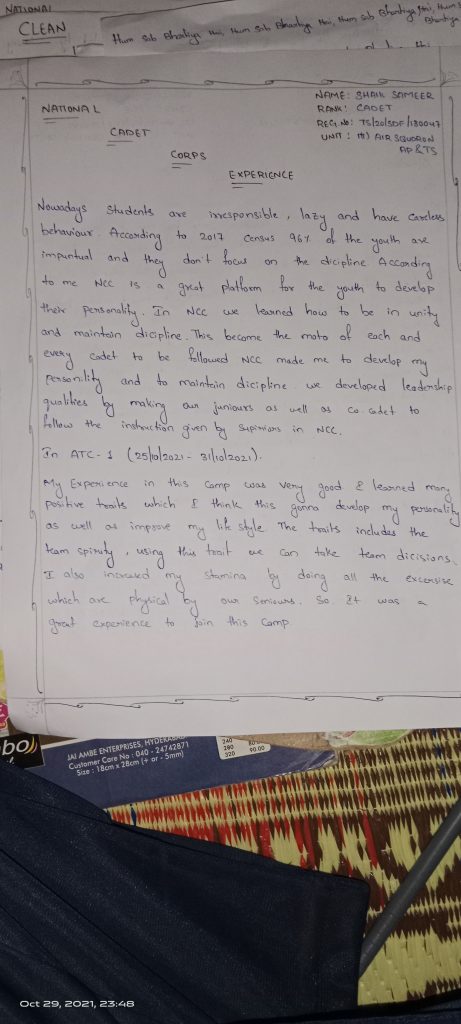 NATIONAL
CLEAN
Hum Sab Bhartiya Hai, Hum Sab Bhartiya Hai, Hum Sab Bhartiya Hai, Hum S
Bhartiya
NAME: SHAIK SAMEER
NATIONAL RANK: CADET
CADET REG. NO: TS/20/SDF/180047
CORPS UNIT: AIR SQUDRON
AP & TS
EXPERIENCE
Nowadays students are irresponsible, lazy and have careless
behaviour. According to 2017 census 96% of the youth are
impuntual and they don't focus on the dicipline. According
to me NCC is a great platform for the youth to develop
their personality. In NCC we learned how to be in unity
and maintain dicipline. This become the moto of each and
every cadet to be followed NCC made me to develop my
personility and to maintain dicipline. we developed leadership
qualities by making our juniours as well as co. cadet to
follow the instruction given by supiriors in NCC.
In ATC-1 (25/10/2021 - 31/10/2021).
My Experience in this camp was very good & learned many
positive traits which I think this gonna develop my personality
as well as improve my life style The traits includes the
team spirity, using this trait we can take team dicisions.
I also increased my stamina by doing all the excersise
which are physical by our seniours. So It was a
great experience to join this camp.
JAI AMBE ENTERPRISES, HYDERABAD
Customer Care No : 040 - 24742871
Size : 18cm x 28cm (+ or - 5mm)
240
280
320 90.00
Oct 29, 2021, 23:48